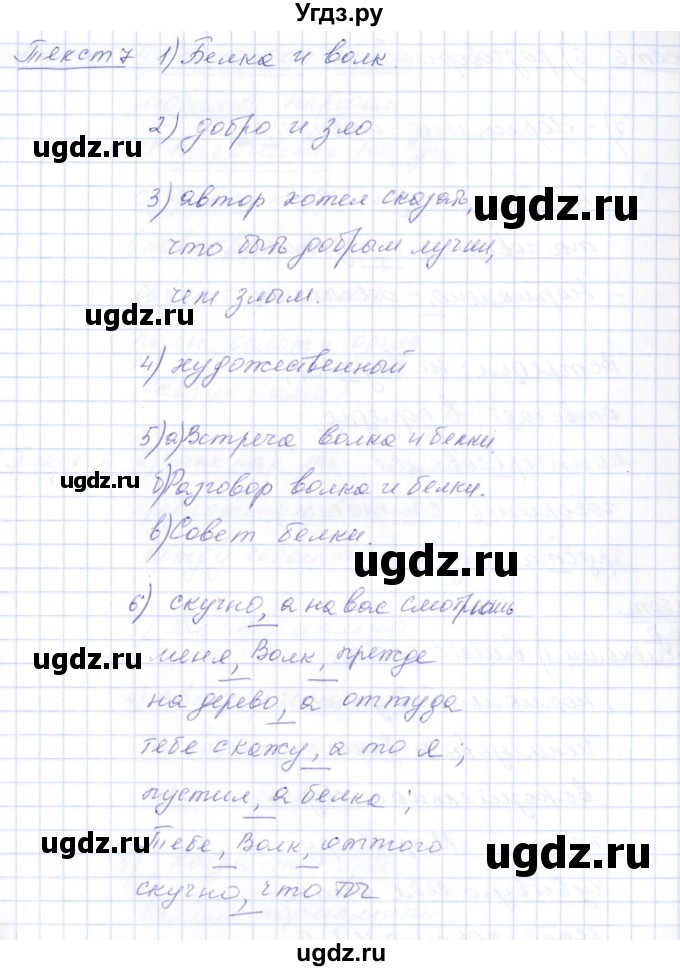 Угдз.ру
Текст 7 1) Белка и волк.
2) добро и зло
ugdz.ru
3) автор хотел сказать,
ugdz.ru
что быть добрым лучше,
чем злым.
ugdz.ru
4) художественный
5) а) Встреча волка и белки.
ugdz.ru
б) Разговор волка и белки.
в) Совет белки.
ugdz.ru
6) скучно, а на вас смотришь
меня, Волк, прежде
ugdz.ru
на дерево, а оттуда
тебе скажу, а то я;
пустил, а белка;
Тебе, Волк, оттого
ugdz.ru
ugdz.ru
скучно, что ты
ugdz.ru